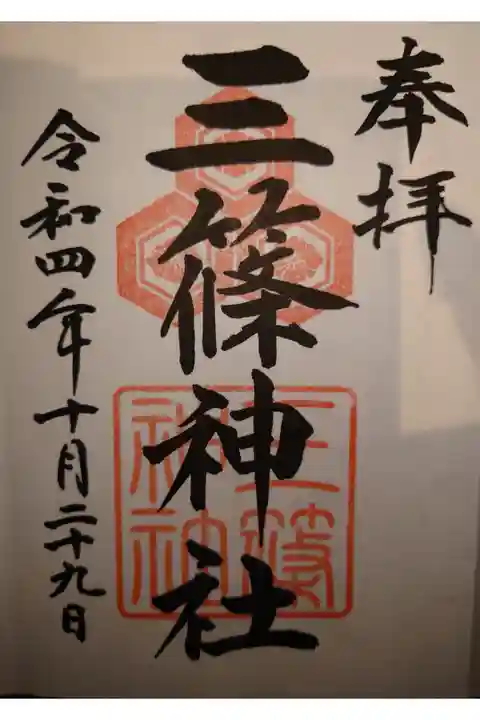 奉拝
三篠神社
三篠
神社
令和四年十月二十九日